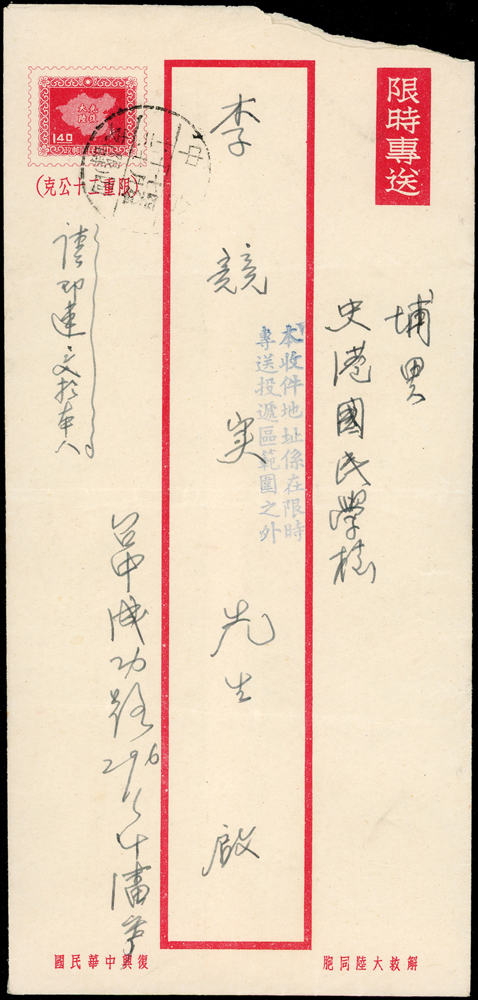 限時專送
埔里
史港國民學校
李競実先生啟
本收件地址係在限時
專送投遞區範圍之外
光復大陸
1.40
(限重二十公克)
請即速交於本人
台中成功路296
解救大陸同胞
復興中華民國